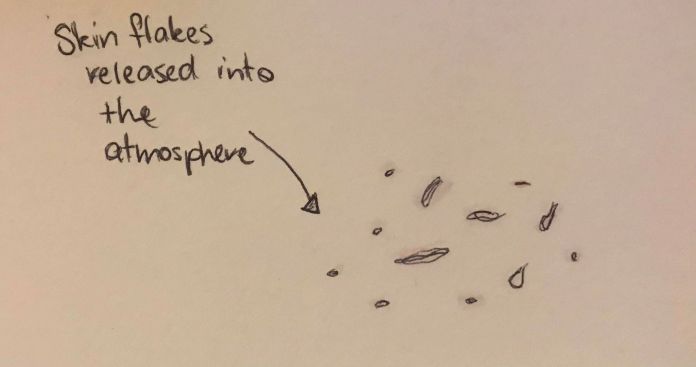 Skin flakes
released into
the
atmosphere